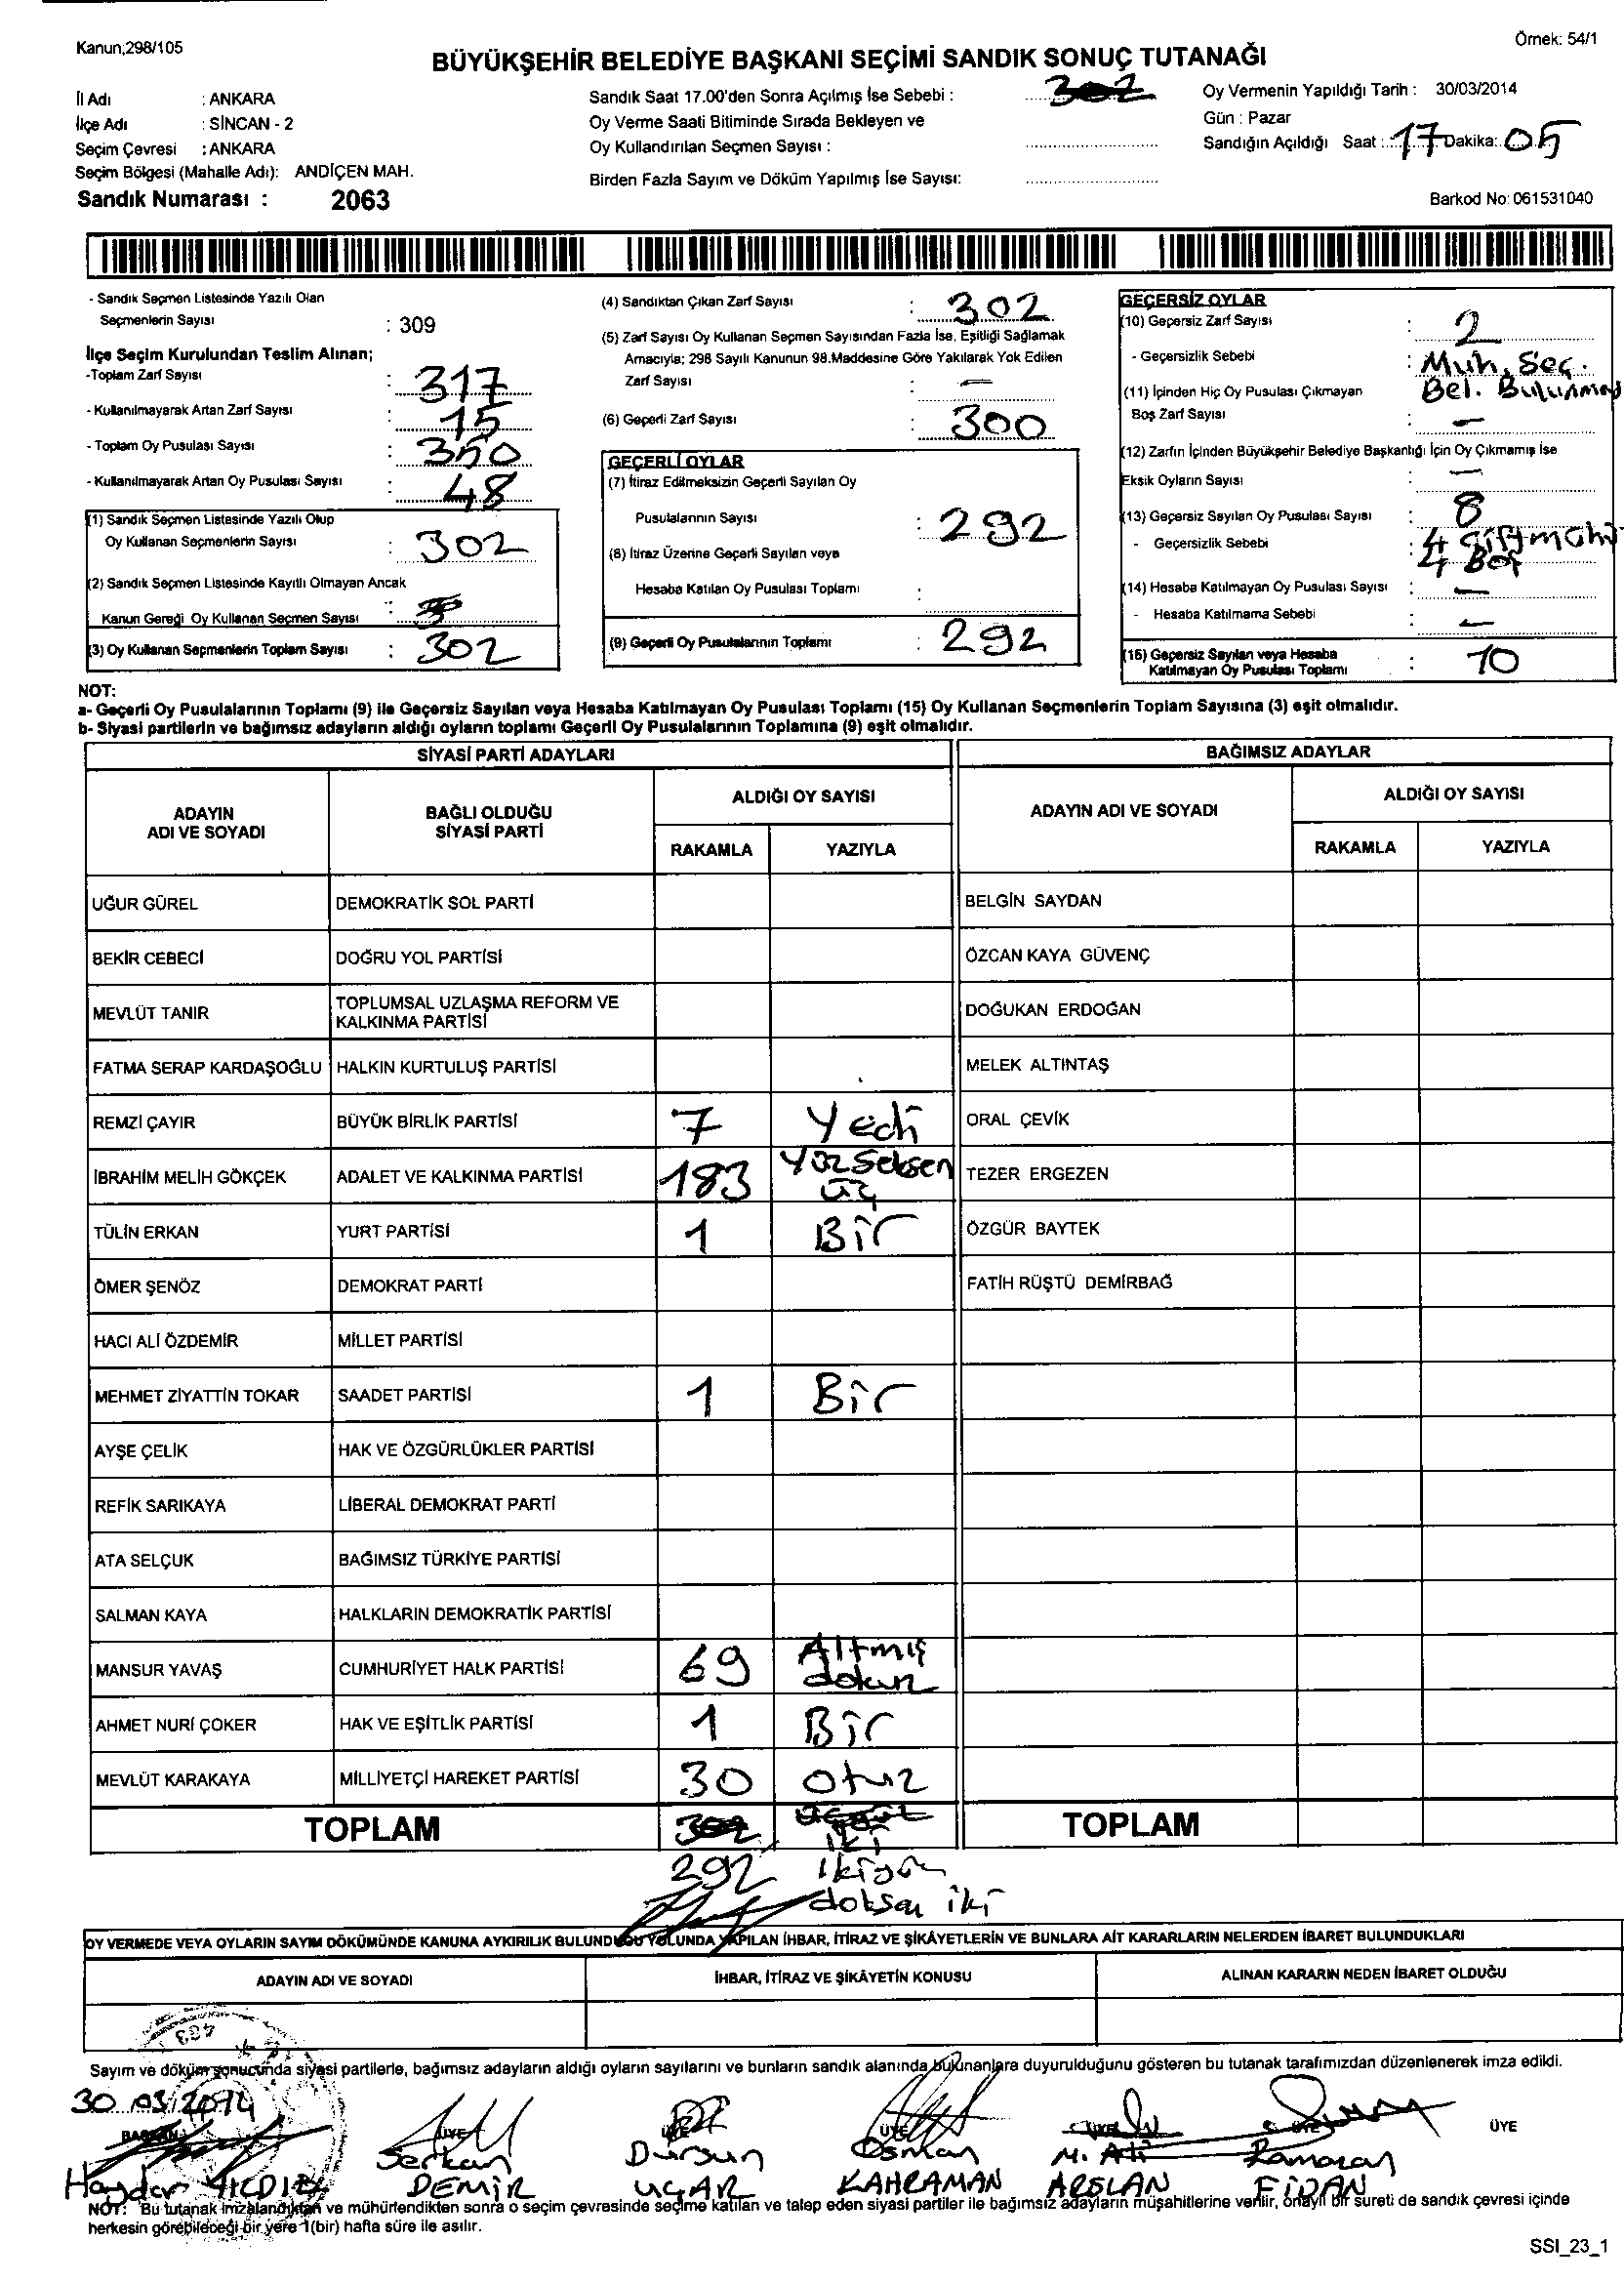 Kanun;298/105
Örnek: 54/1
BÜYÜKŞEHİR BELEDİYE BAŞKANI SEÇİMİ SANDIK SONUÇ TUTANAĞI
İl Adı : ANKARA
İlçe Adı : SİNCAN - 2
Seçim Çevresi : ANKARA
Seçim Bölgesi (Mahalle Adı): ANDİÇEN MAH.
Sandık Numarası : 2063
Sandık Saat 17.00'den Sonra Açılmış İse Sebebi :
Oy Verme Saati Bitiminde Sırada Bekleyen ve
Oy Kullandırılan Seçmen Sayısı :
Birden Fazla Sayım ve Döküm Yapılmış İse Sayısı:
Oy Vermenin Yapıldığı Tarih : 30/03/2014
Gün : Pazar
Sandığın Açıldığı Saat : 17 Dakika: 05
Barkod No: 061531040
- Sandık Seçmen Listesinde Yazılı Olan
Seçmenlerin Sayısı : 309
İlçe Seçim Kurulundan Teslim Alınan;
-Toplam Zarf Sayısı : 317
- Kullanılmayarak Artan Zarf Sayısı : 15
- Toplam Oy Pusulası Sayısı : 350
- Kullanılmayarak Artan Oy Pusulası Sayısı : 48
(1) Sandık Seçmen Listesinde Yazılı Olup
Oy Kullanan Seçmenlerin Sayısı : 302
(2) Sandık Seçmen Listesinde Kayıtlı Olmayan Ancak
Kanun Gereği Oy Kullanan Seçmen Sayısı :
(3) Oy Kullanan Seçmenlerin Toplam Sayısı : 302
(4) Sandıktan Çıkan Zarf Sayısı : 302
(5) Zarf Sayısı Oy Kullanan Seçmen Sayısından Fazla İse, Eşitliği Sağlamak
Amacıyla; 298 Sayılı Kanunun 98.Maddesine Göre Yakılarak Yok Edilen
Zarf Sayısı : —
(6) Geçerli Zarf Sayısı : 300
GEÇERLİ OYLAR
(7) İtiraz Edilmeksizin Geçerli Sayılan Oy
Pusulalarının Sayısı : 292
(8) İtiraz Üzerine Geçerli Sayılan veya
Hesaba Katılan Oy Pusulası Toplamı :
(9) Geçerli Oy Pusulalarının Toplamı : 292
GEÇERSİZ OYLAR
(10) Geçersiz Zarf Sayısı : 2
- Geçersizlik Sebebi : Muh. Seç.
Bel. Bulunmay
(11) İçinden Hiç Oy Pusulası Çıkmayan
Boş Zarf Sayısı : —
(12) Zarfın İçinden Büyükşehir Belediye Başkanlığı İçin Oy Çıkmamış İse
Eksik Oyların Sayısı : —
(13) Geçersiz Sayılan Oy Pusulası Sayısı : 8
- Geçersizlik Sebebi : 4 Çift mühü
4 Boş
(14) Hesaba Katılmayan Oy Pusulası Sayısı : —
- Hesaba Katılmama Sebebi : —
(15) Geçersiz Sayılan veya Hesaba
Katılmayan Oy Pusulası Toplamı : 10
NOT:
a- Geçerli Oy Pusulalarının Toplamı (9) ile Geçersiz Sayılan veya Hesaba Katılmayan Oy Pusulası Toplamı (15) Oy Kullanan Seçmenlerin Toplam Sayısına (3) eşit olmalıdır.
b- Siyasi partilerin ve bağımsız adayların aldığı oyların toplamı Geçerli Oy Pusulalarının Toplamına (9) eşit olmalıdır.
SİYASİ PARTİ ADAYLARI BAĞIMSIZ ADAYLAR
ADAYIN
ADI VE SOYADI
BAĞLI OLDUĞU
SİYASİ PARTİ
ALDIĞI OY SAYISI
RAKAMLA YAZIYLA
ADAYIN ADI VE SOYADI
ALDIĞI OY SAYISI
RAKAMLA YAZIYLA
UĞUR GÜREL DEMOKRATİK SOL PARTİ BELGİN SAYDAN
BEKİR CEBECİ DOĞRU YOL PARTİSİ ÖZCAN KAYA GÜVENÇ
MEVLÜT TANIR TOPLUMSAL UZLAŞMA REFORM VE
KALKINMA PARTİSİ DOĞUKAN ERDOĞAN
FATMA SERAP KARDAŞOĞLU HALKIN KURTULUŞ PARTİSİ MELEK ALTINTAŞ
REMZİ ÇAYIR BÜYÜK BİRLİK PARTİSİ 7 Yedi ORAL ÇEVİK
İBRAHİM MELİH GÖKÇEK ADALET VE KALKINMA PARTİSİ 183 Yüz Seksen
üç TEZER ERGEZEN
TÜLİN ERKAN YURT PARTİSİ 1 Bir ÖZGÜR BAYTEK
ÖMER ŞENÖZ DEMOKRAT PARTİ FATİH RÜŞTÜ DEMİRBAĞ
HACI ALİ ÖZDEMİR MİLLET PARTİSİ
MEHMET ZİYATTİN TOKAR SAADET PARTİSİ 1 Bir
AYŞE ÇELİK HAK VE ÖZGÜRLÜKLER PARTİSİ
REFİK SARIKAYA LİBERAL DEMOKRAT PARTİ
ATA SELÇUK BAĞIMSIZ TÜRKİYE PARTİSİ
SALMAN KAYA HALKLARIN DEMOKRATİK PARTİSİ
MANSUR YAVAŞ CUMHURİYET HALK PARTİSİ 69 Altmış
dokuz
AHMET NURİ ÇOKER HAK VE EŞİTLİK PARTİSİ 1 Bir
MEVLÜT KARAKAYA MİLLİYETÇİ HAREKET PARTİSİ 30 Otuz
TOPLAM 302 iki TOPLAM
292 ikiyüz
doksan iki
OY VERMEDE VEYA OYLARIN SAYIM DÖKÜMÜNDE KANUNA AYKIRILIK BULUNDUĞU YOLUNDA YAPILAN İHBAR, İTİRAZ VE ŞİKÂYETLERİN VE BUNLARA AİT KARARLARIN NELERDEN İBARET BULUNDUKLARI
ADAYIN ADI VE SOYADI İHBAR, İTİRAZ VE ŞİKÂYETİN KONUSU ALINAN KARARIN NEDEN İBARET OLDUĞU
Sayım ve döküm sonucunda siyasi partilerle, bağımsız adayların aldığı oyların sayılarını ve bunların sandık alanında bulunanlara duyurulduğunu gösteren bu tutanak tarafımızdan düzenlenerek imza edildi.
30.03.2014
BAŞKAN ÜYE ÜYE ÜYE ÜYE ÜYE ÜYE
Haydar YILDIZ
Serkan DEMİR
Dursun UÇAR
Osman KAHRAMAN
M. Ali ARSLAN
Ramazan FİDAN
NOT: Bu tutanak imzalandıktan ve mühürlendikten sonra o seçim çevresinde seçime katılan ve talep eden siyasi partiler ile bağımsız adayların müşahitlerine verilir, onaylı bir sureti de sandık çevresi içinde
herkesin görebileceği bir yere 1(bir) hafta süre ile asılır.
SSI_23_1